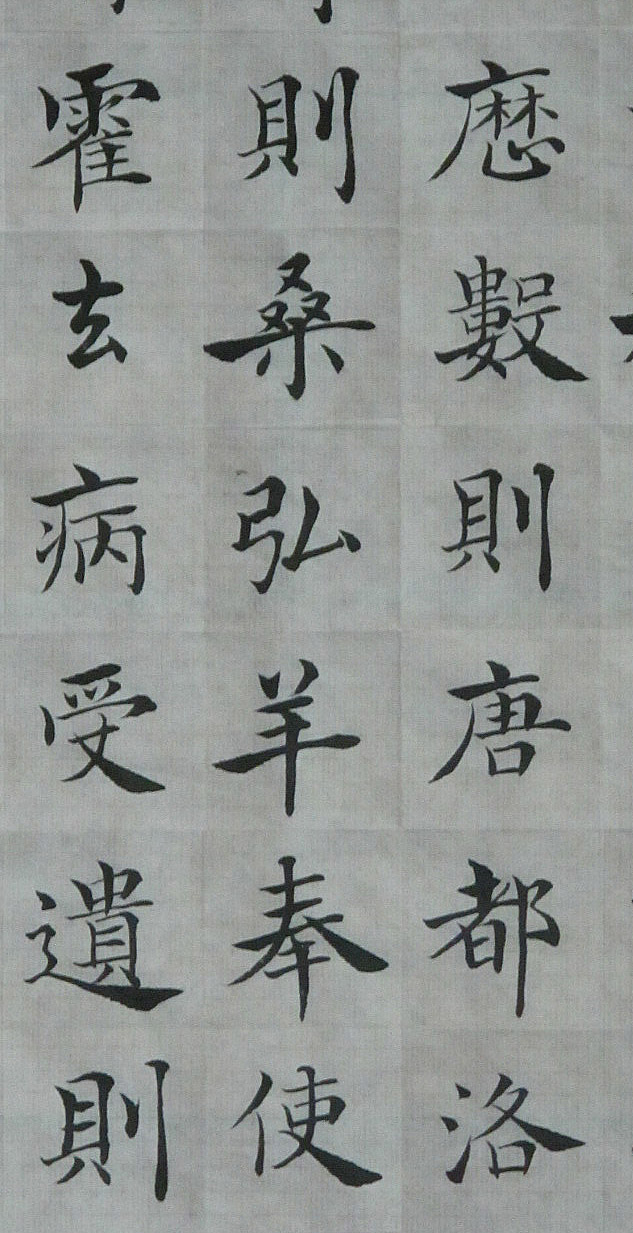 歷數則唐都洛
則桑弘羊奉使
霍去病受遺則